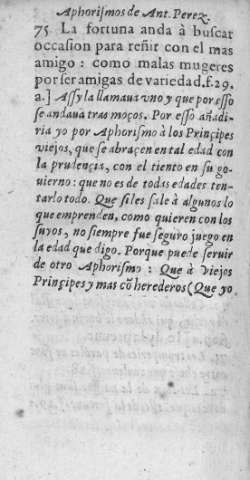 Aphorismos de Ant. Perez.
75 La fortuna anda à buscar
occasion para reñit con el mas
amigo : como malas mugeres
por ser amigas de variedad.f.29.
a.] Assy la llamaua vno y que por esso
se andaua tras moços. Por esso añadi-
ria yo por Aphorismo à los Prinçipes
viejos, que se abraçen en tal edad con
la prudençia, con el tiento en su go-
uierno: que no es de todas edades ten-
tarlo todo. Que si les sale à algunos lo
que emprenden, como quieren con los
suyos, no siempre fue seguro juego en
la edad que digo. Porque puede seruir
de otro Aphorismo : Que à viejos
Prinçipes y mas cõ herederos (Que yo